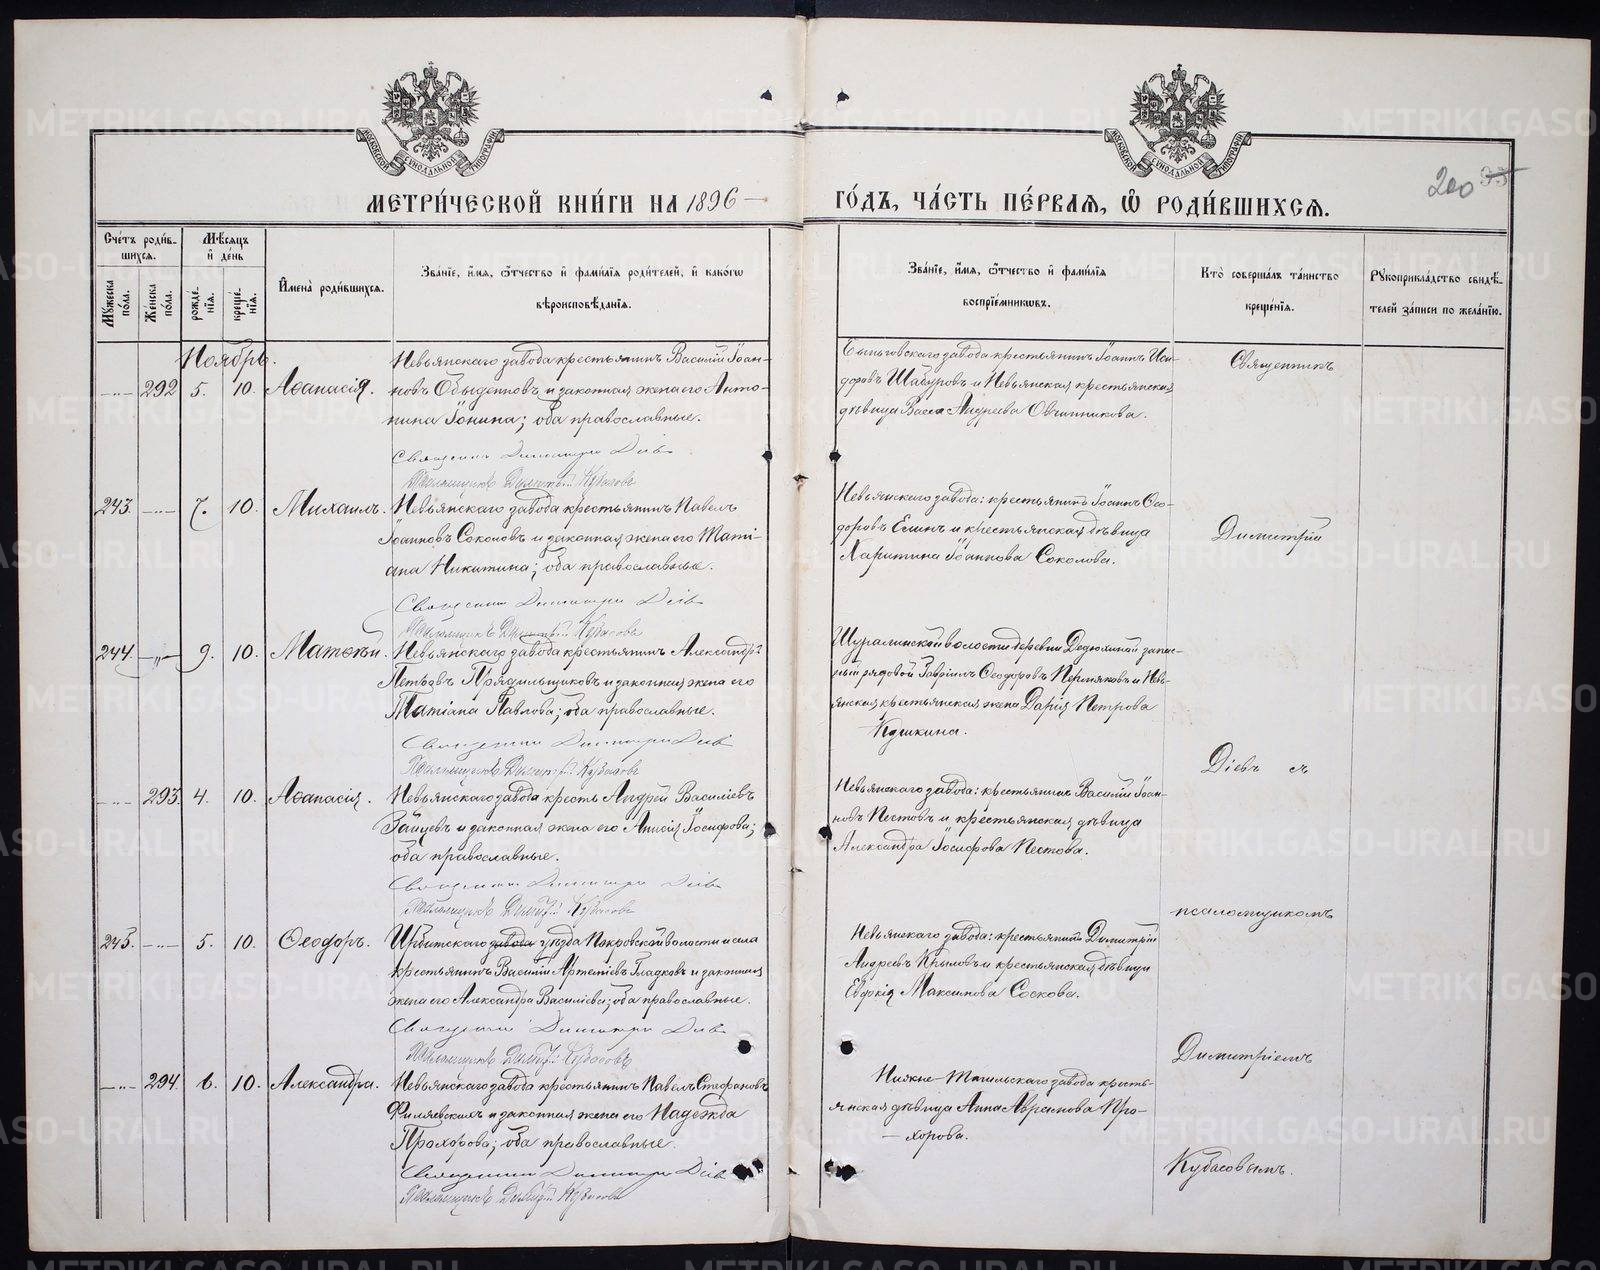 МЕТРИ́ЧЕСКОЙ КНИ́ГИ НА 1896
ГО́ДЪ, ЧА́СТЬ ПЕ́РВАѦ, Ѿ РОДИ́ВШИХСѦ.
200
Сче́тъ роди́вшихсѧ.
Мꙋ́жеска по́ла.
Же́нска по́ла.
Мѣ́сѧцъ и҆ де́нь
рожде́нїѧ.
креще́нїѧ.
И҆мена̀ роди́вшихсѧ.
Зва́нїе, и҆́мѧ, ѻ҆́тчество и҆ фами́лїѧ роди́телей, и҆ како́гѡ
вѣроисповѣ́данїѧ.
Зва́нїе, и҆́мѧ, ѻ҆́тчество и҆ фами́лїѧ
воспрїе́мникѡвъ.
Кто̀ соверша́лъ та́инство
креще́нїѧ.
Рꙋкоприкла́дство свидѣ́-
телей за́писи по жела́нїю.
Ноябрь.
292 5. 10. Аѳанасія.
Невьянскаго завода крестьянинъ Василій Іоан-
новъ Обыденновъ и законная жена его Анто-
нина Іонина; оба православные.
Священникъ Димитрій Діевъ
Псаломщикъ Димитрій Кубасовъ
Быньговскаго завода крестьянинъ Іоаннъ Иси-
доровъ Шабуровъ и Невьянская крестьянская
дѣвица Васса Андреева Овчинникова.
Священникъ
243. 7. 10. Михаилъ.
Невьянскаго завода крестьянинъ Павелъ
Іоанновъ Соколовъ и законная жена его Тати-
ана Никитина; оба православные.
Священникъ Димитрій Діевъ
Псаломщикъ Димитрій Кубасовъ
Невьянскаго завода: крестьянинъ Іоаннъ Ѳео-
доровъ Елинъ и крестьянская дѣвица
Харитина Іоаннова Соколова.
Димитрій
244. 9. 10. Матѳей.
Невьянскаго завода крестьянинъ Александръ
Петровъ Прядильщиковъ и законная жена его
Татіана Павлова; оба православные.
Священникъ Димитрій Діевъ
Псаломщикъ Димитрій Кубасовъ
Шуралинской волости деревни Дедюхиной запас-
ный рядовой Гавріилъ Ѳеодоровъ Пермяковъ и Невь-
янская крестьянская жена Дарія Петрова
Кушкина.
Діевъ съ
293. 4. 10. Аѳанасія.
Невьянскаго завода кресть Андрей Василіевъ
Зайцевъ и законная жена его Анисія Іосифова;
оба православные.
Священникъ Димитрій Діевъ
Псаломщикъ Димитрій Кубасовъ
Невьянскаго завода: крестьянинъ Василій Іоан-
новъ Пестовъ и крестьянская дѣвица
Александра Іосифова Пестова.
псаломщикомъ
245. 5. 10. Ѳеодоръ.
Ирбитскаго завода уѣзда Покровской волости и села
крестьянинъ Василій Артеміевъ Гладковъ и законная
жена его Александра Василіева; оба православные.
Священникъ Димитрій Діевъ
Псаломщикъ Димитрій Кубасовъ
Невьянскаго завода: крестьянинъ Димитрій
Андреевъ Крыловъ и крестьянская дѣвица
Евдокія Максимова Соскова.
Димитріемъ
294. 6. 10. Александра.
Невьянскаго завода крестьянинъ Павелъ Стефановъ
Филяевскихъ и законная жена его Надежда
Прохорова; оба православные.
Священникъ Димитрій Діевъ
Псаломщикъ Димитрій Кубасовъ
Нижне-Тагильскаго завода кресть-
янская дѣвица Анна Авраамова Про-
хорова.
Кубасовымъ.